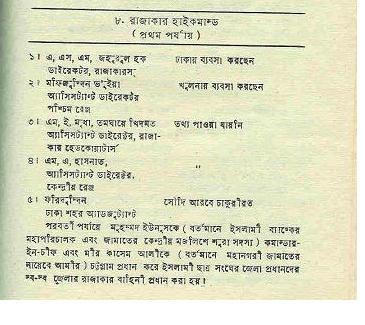 ৮. রাজাকার হাইকমান্ড
( প্রথম পর্যায় )
১। এ, এস, এম, জহুরুল হক ঢাকায় ব্যবসা করছেন
ডাইরেকটর, রাজাকারস্
২। মফিজুদ্দিন ভূইয়া খুলনায় ব্যবসা করছেন
অ্যাসিসট্যান্ট ডাইরেকটর
পশ্চিম রেঞ্জ
৩। এম, ই, মৃধা, তমঘায়ে খিদমত তথ্য পাওয়া যায়নি
অ্যাসিসট্যান্ট ডাইরেক্টর, রাজা-
কার হেডকোয়ার্টার্স
৪। এম, এ, হাসনাত, "
অ্যাসিসট্যান্ট ডাইরেক্টর,
কেন্দ্রীয় রেঞ্জ
৫। ফরিদুদ্দিন সৌদি আরবে চাকুরীরত
ঢাকা শহর অ্যাডজুট্যান্ট
পরবর্তী পর্যায়ে মুহম্মদ ইউনুসকে ( বর্তমানে ইসলামী ব্যাংকের
মহাপরিচালক এবং জামাতের কেন্দ্রীয় মজলিশে শুরা সদস্য ) কমান্ডার-
ইন-চীফ এবং মীর কাসেম আলীকে ( বর্তমানে মহানগরী জামাতের
নায়েবে আমীর ) চট্টগ্রাম প্রধান করে ইসলামী ছাত্র সংঘের জেলা প্রধানদের
স্ব-স্ব জেলার রাজাকার বাহিনী প্রধান করা হয়।